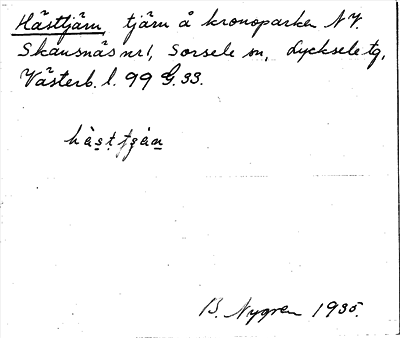 Hästtjärn, tjärn å kronoparken N.Y.
Skansnäs nr 1, Sorsele sn, Lycksele tg,
Västerb. l. 99 G. 33.
B. Nygren 1935.